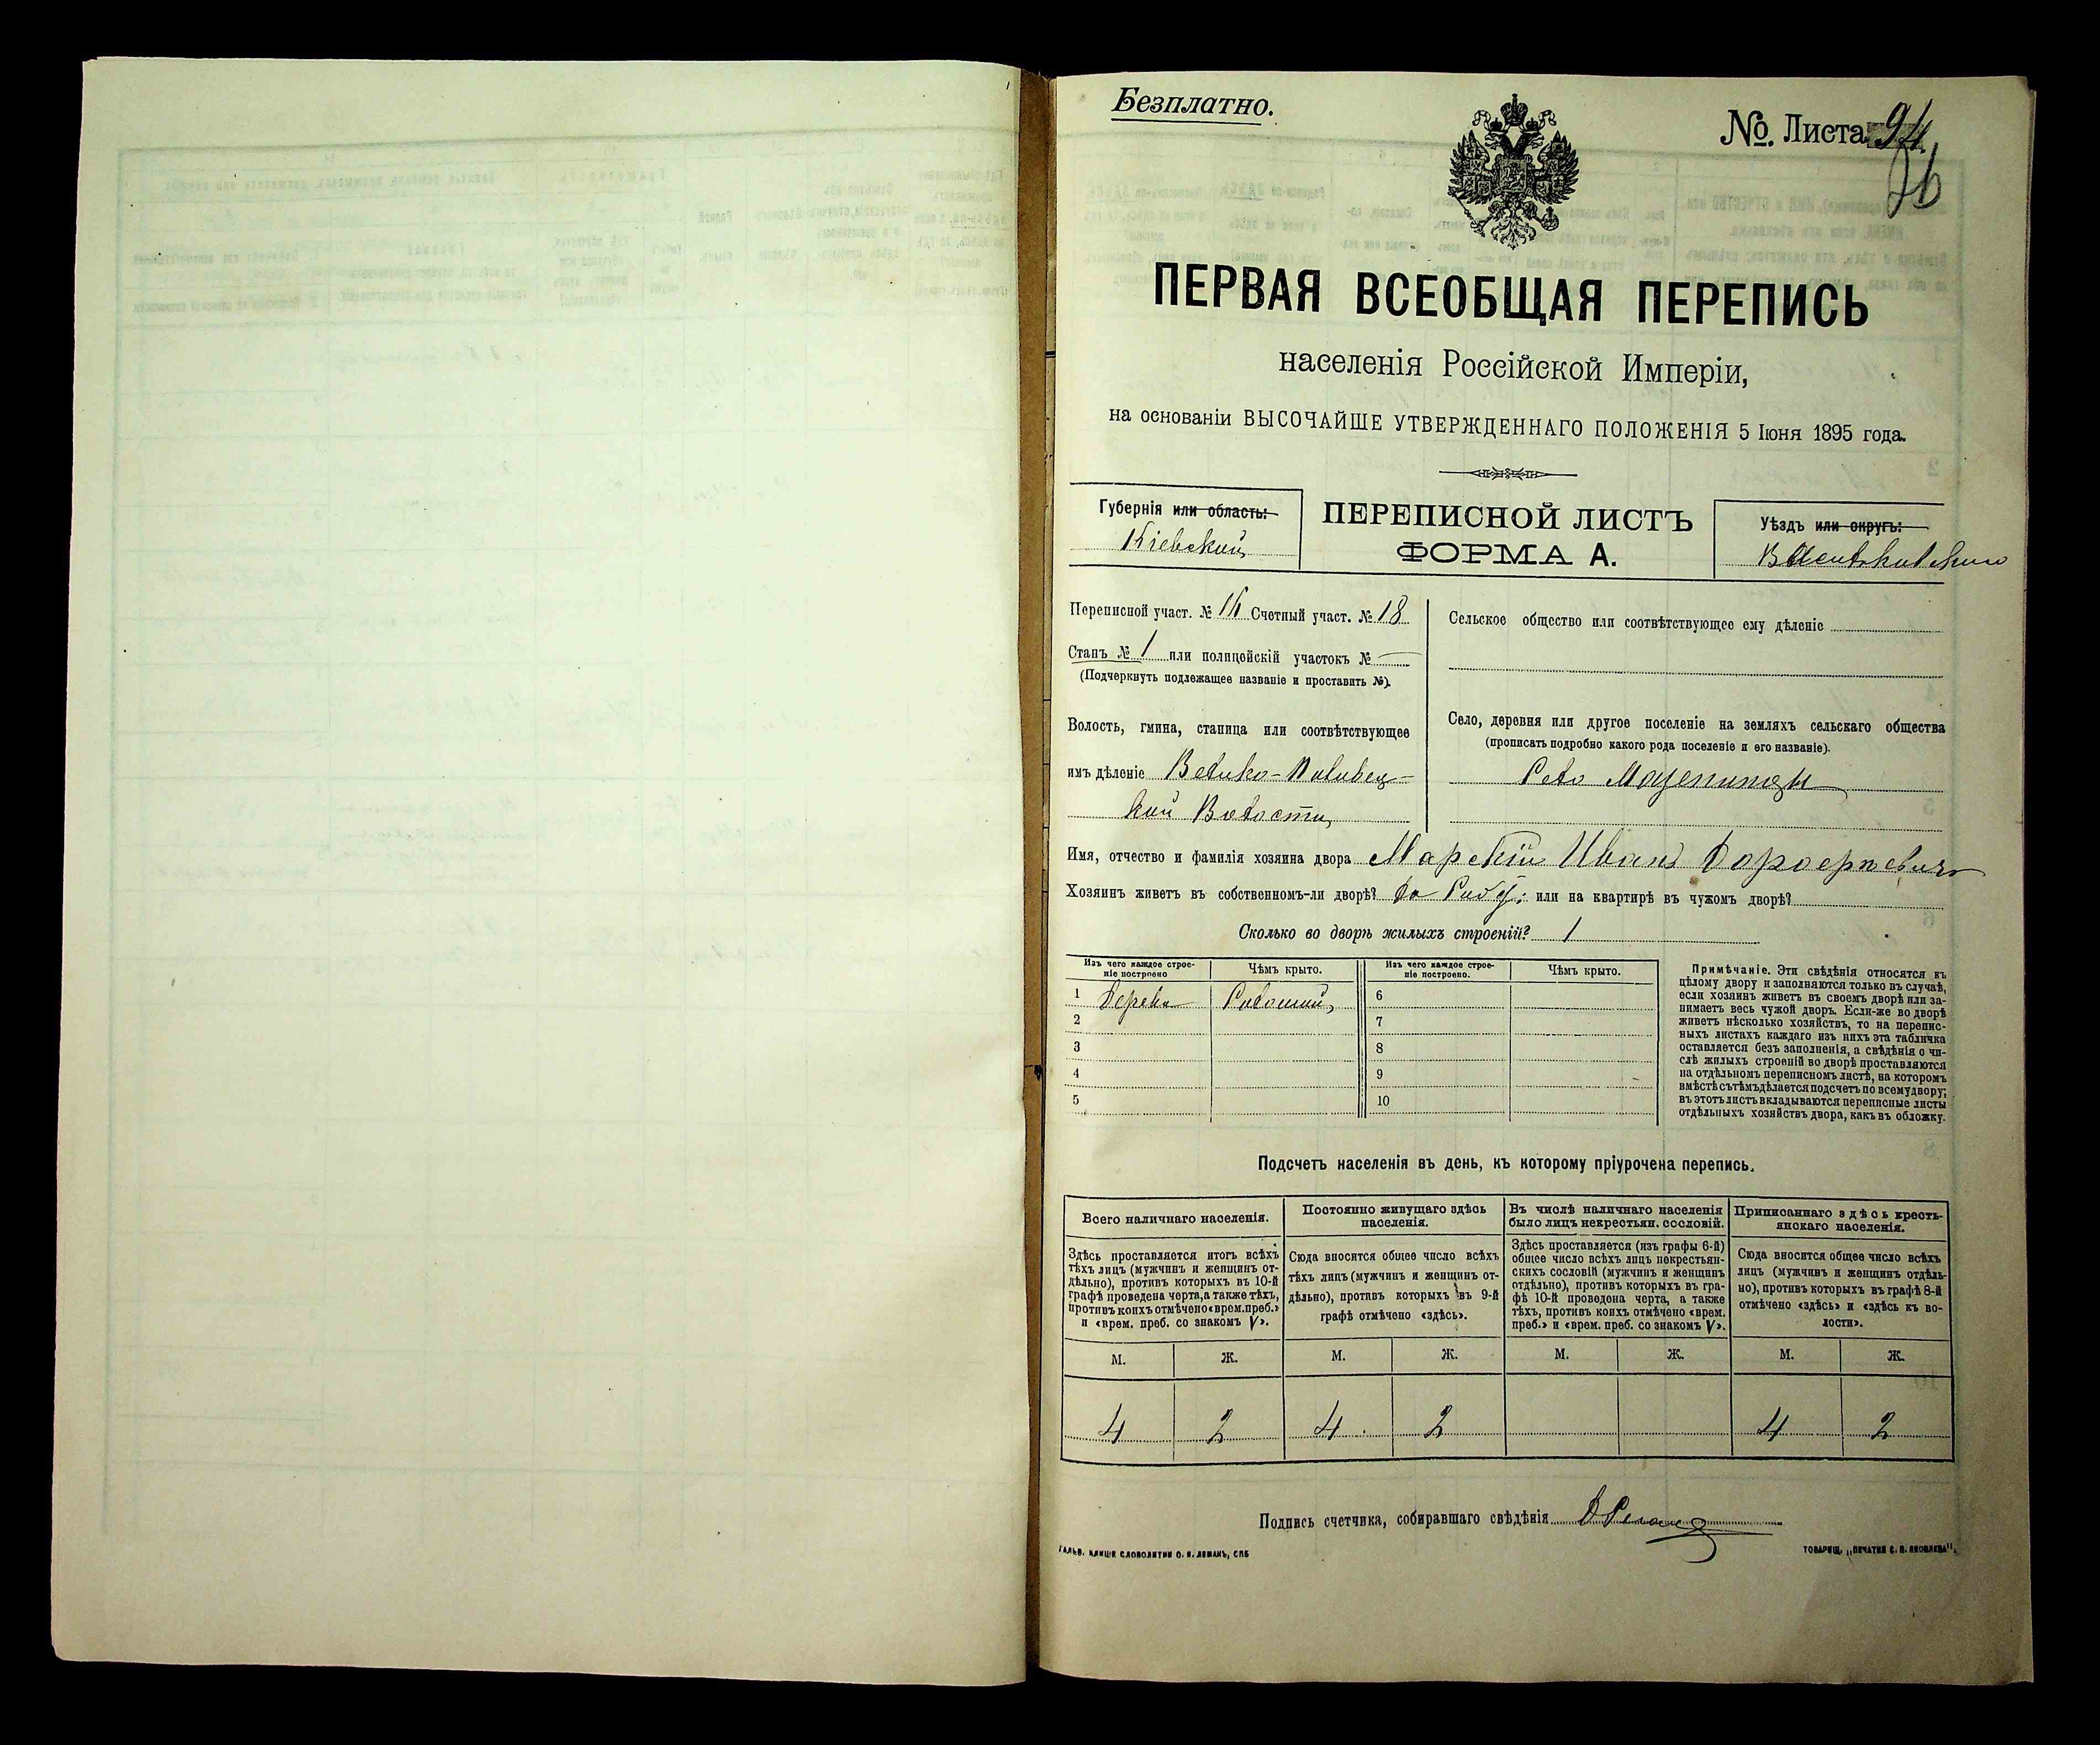 Безплатно.
№. Листа 94.
26
ПЕРВАЯ ВСЕОБЩАЯ ПЕРЕПИСЬ
населенія Россійской Имперіи,
на основаніи ВЫСОЧАЙШЕ УТВЕРЖДЕННАГО ПОЛОЖЕНІЯ 5 Іюня 1895 года.
Губернія или область:
Кіевской
ПЕРЕПИСНОЙ ЛИСТЪ
ФОРМА А.
Уѣздъ или округъ:
Васильковскаго
Переписной участ. № 16 Счетный участ. № 18
Станъ № 1 или полицейскій участокъ № —
(Подчеркнуть подлежащее названіе и проставить №).
Волость, гмина, станица или соотвѣтствующее
имъ дѣленіе Велико-Половец-
кой Волости
Сельское общество или соотвѣтствующее ему дѣленіе
Село, деревня или другое поселеніе на земляхъ сельскаго общества
(прописать подробно какого рода поселеніе и его названіе).
Село
Имя, отчество и фамилія хозяина двора Иванъ
Хозяинъ живетъ въ собственномъ-ли дворѣ? или на квартирѣ въ чужомъ дворѣ?
Сколько во дворѣ жилыхъ строеній? 1
Изъ чего каждое строе-
ніе построено
Чѣмъ крыто.
Изъ чего каждое строе-
ніе построено.
Чѣмъ крыто.
1 Дерева Соломой 6
2 7
3 8
4 9
5 10
Примѣчаніе. Эти свѣдѣнія относятся къ
цѣлому двору и заполняются только въ случаѣ,
если хозяинъ живетъ въ своемъ дворѣ или за-
нимаетъ весь чужой дворъ. Если-же во дворѣ
живетъ нѣсколько хозяйствъ, то на перепис-
ныхъ листахъ каждаго изъ нихъ эта табличка
оставляется безъ заполненія, а свѣдѣнія о чи-
слѣ жилыхъ строеній во дворѣ проставляются
на отдѣльномъ переписномъ листѣ, на которомъ
вмѣстѣ съ тѣмъ дѣлается подсчетъ по всему двору;
въ этотъ листъ вкладываются переписные листы
отдѣльныхъ хозяйствъ двора, какъ въ обложку.
Подсчетъ населенія въ день, къ которому пріурочена перепись.
Всего наличнаго населенія.
Здѣсь проставляется итогъ всѣхъ
тѣхъ лицъ (мужчинъ и женщинъ от-
дѣльно), противъ которыхъ въ 10-й
графѣ проведена черта, а также тѣхъ,
противъ коихъ отмѣчено «врем. преб.»
и «врем. преб. со знакомъ V».
Постоянно живущаго здѣсь
населенія.
Сюда вносится общее число всѣхъ
тѣхъ лицъ (мужчинъ и женщинъ от-
дѣльно), противъ которыхъ въ 9-й
графѣ отмѣчено «здѣсь».
Въ числѣ наличнаго населенія
было лицъ некрестьян. сословій.
Здѣсь проставляется (изъ графы 6-й)
общее число всѣхъ лицъ некрестьян-
скихъ сословій (мужчинъ и женщинъ
отдѣльно), противъ которыхъ въ гра-
фѣ 10-й проведена черта, а также
тѣхъ, противъ коихъ отмѣчено «врем.
преб.» и «врем. преб. со знакомъ V».
Приписаннаго здѣсь кресть-
янскаго населенія.
Сюда вносится общее число всѣхъ
лицъ (мужчинъ и женщинъ отдѣль-
но), противъ которыхъ въ графѣ 8-й
отмѣчено «здѣсь» и «здѣсь къ во-
лости».
М. Ж. М. Ж. М. Ж. М. Ж.
4 2 4 2 4 2
Подпись счетчика, собиравшаго свѣдѣнія
ГАЛЬВ. КЛИШЕ СЛОВОЛИТНИ О. И. ЛЕМАНЪ, СПБ
ТОВАРИЩ. „ПЕЧАТНЯ С. П. ЯКОВЛЕВА".